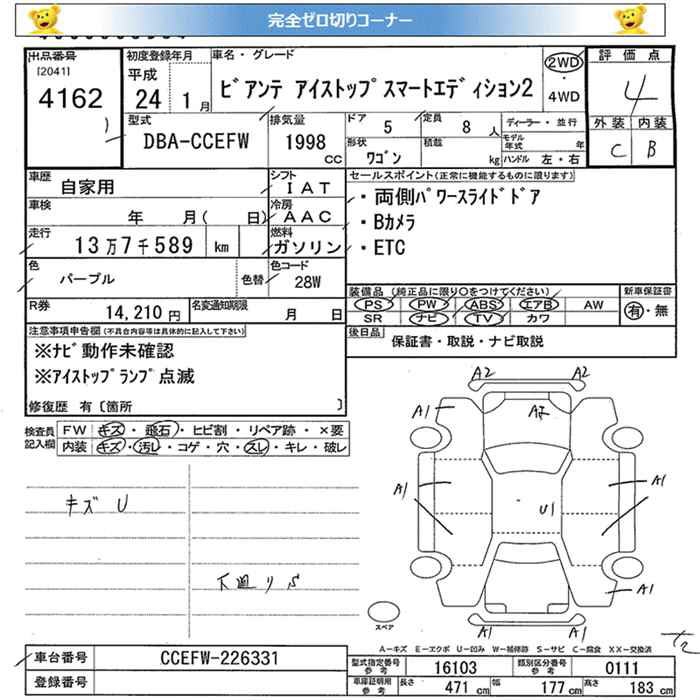 完全ゼロ切りコーナー
出品番号
[2041]
4162
初度登録年月
平成
24 1月
車名・グレード
ビアンテ アイストップスマートエディション2
2WD
4WD
評価点
4
外装 内装
C B
型式
DBA-CCEFW
排気量
1998
CC
ドア 5
定員 8人
ディーラー・並行
形状 ワゴン
積載 kg
モデル年式 年
ハンドル 左・右
車歴
自家用
シフト
IAT
車検
年 月( 日)
冷房
AAC
走行
13万7千589 km
燃料
ガソリン
色
パープル
色替
色コード
28W
R券
14,210円
名変通知期限
月 日
セールスポイント(正常に機能するものに限ります)
・両側パワースライドドア
・Bカメラ
・ETC
装備品(純正品に限り○をつけてください)
PS PW ABS エアB AW
SR ナビ TV カワ
新車保証書
有・無
後日品
保証書・取説・ナビ取説
注意事項申告欄(不具合内容等は具体的に記入して下さい)
※ナビ動作未確認
※アイストップランプ点滅
修復歴 有〔箇所 〕
検査員記入欄
FW キズ・飛石・ヒビ割・リペア跡・×要
内装 キズ・汚レ・コゲ・穴・スレ・キレ・破レ
キズ U
下廻りS
A2 A2
A1 A2
A1 A1
U1
A1
A1 A1
スペア
A-キズ E-エクボ U-凹み W-補修跡 S-サビ C-腐食 XX-交換済
車台番号
CCEFW-226331
登録番号
型式指定番号 参考
16103
類別区分番号 参考
0111
車庫証明用 参考
長さ 471 cm 幅 177 cm 高さ 183 cm